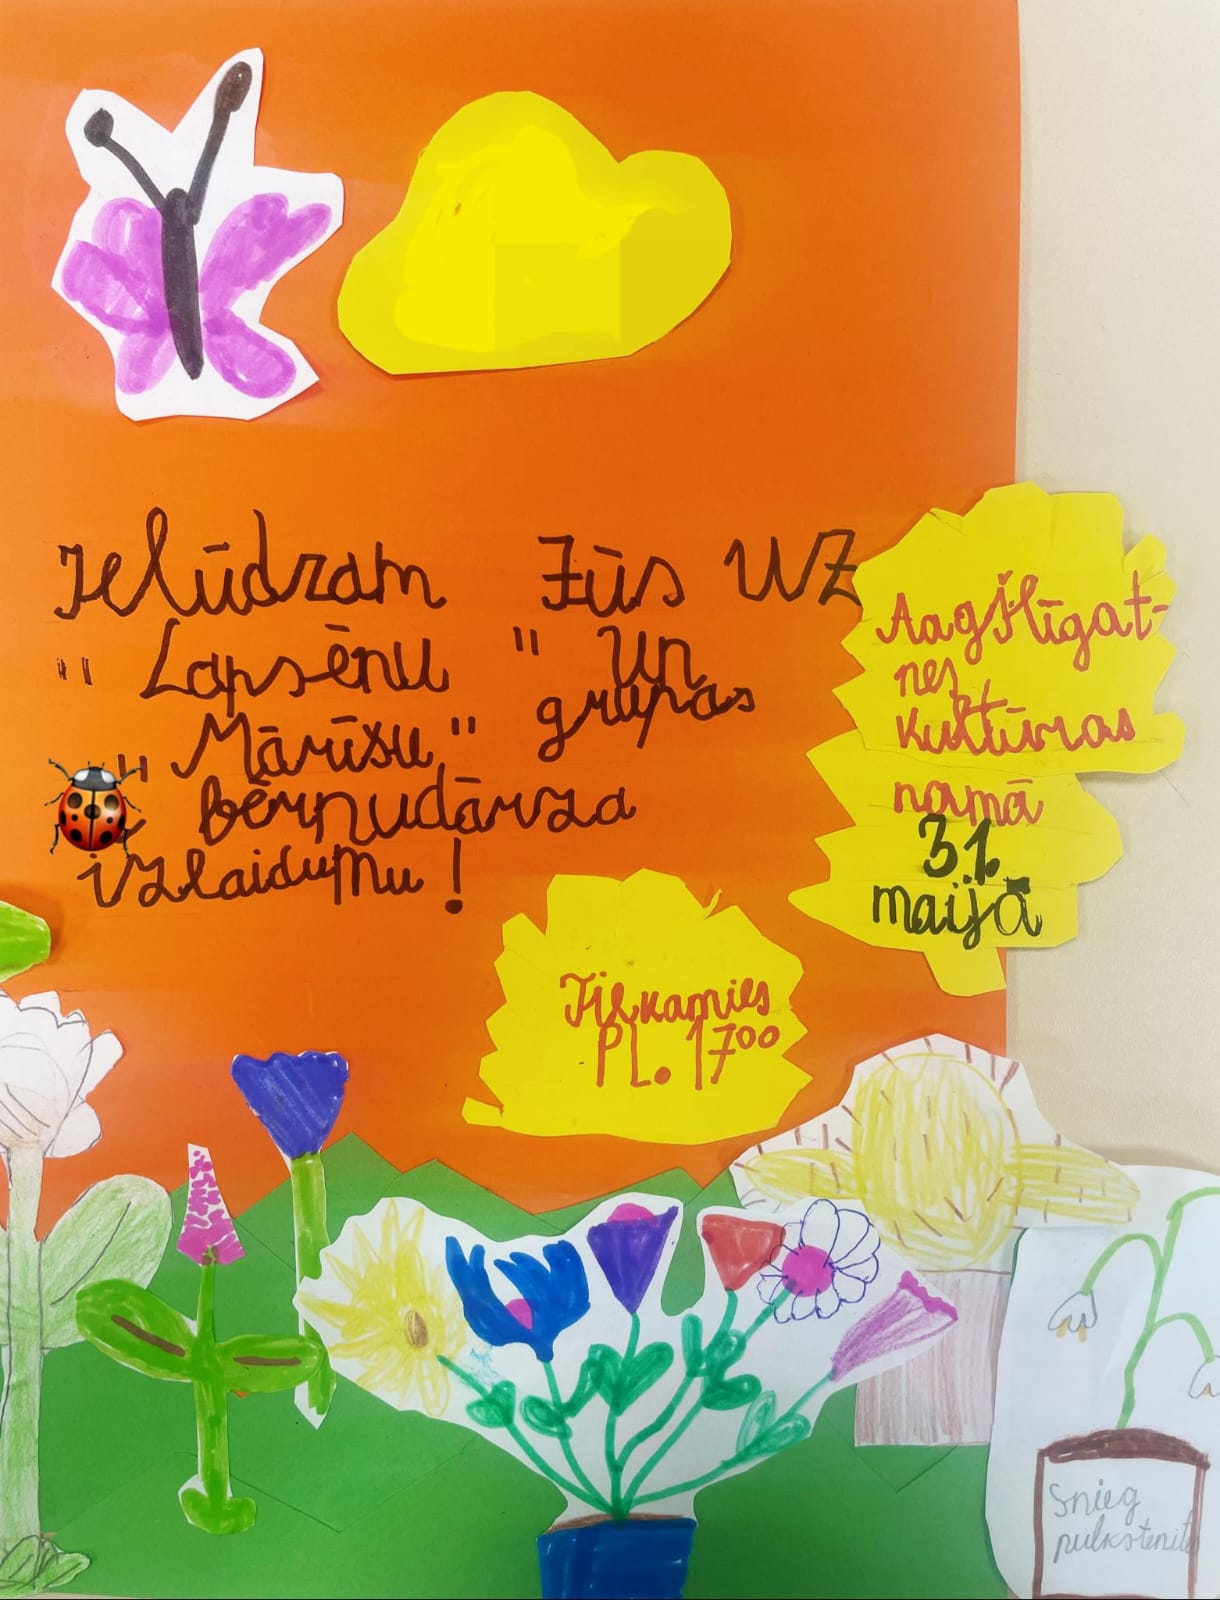 Ielūdzam Jūs uz
"Lapsēnu" un
"Mārīšu" grupas
bērnudārza
izlaidumu!
Augšlīgat-
nes
kultūras
namā
31.
maijā
Tiekamies
PL. 17⁰⁰
Snieg
pulkstenite